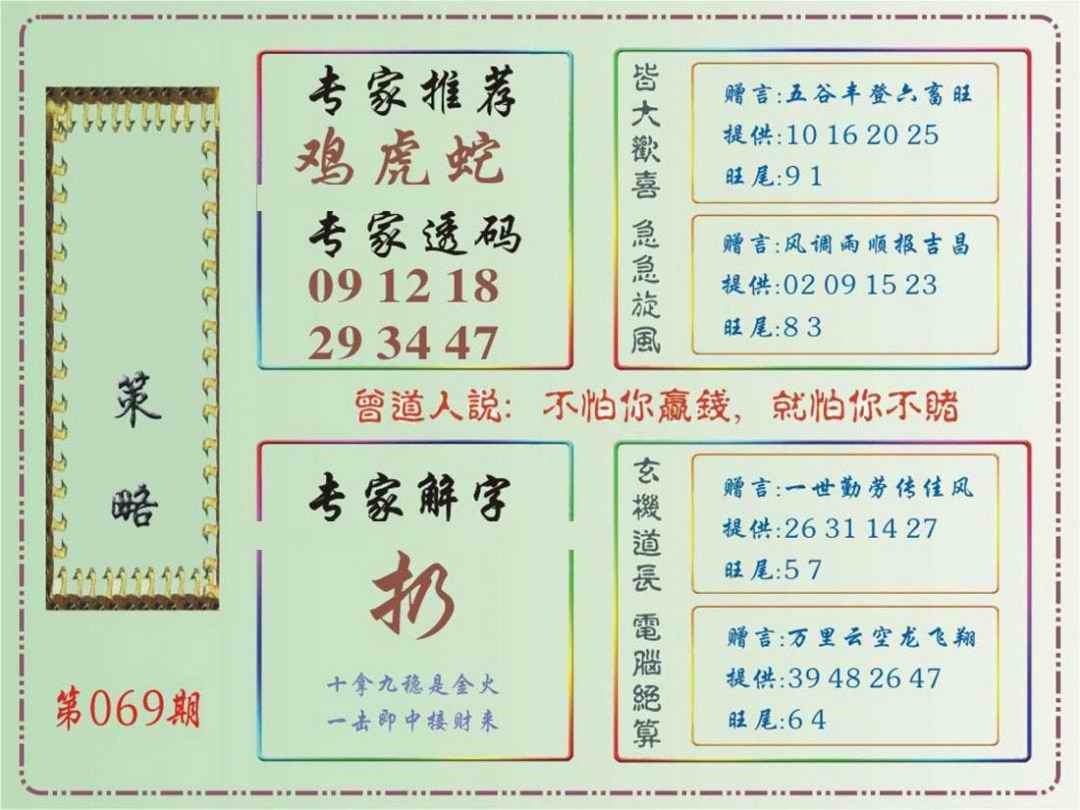 策略
第069期
专家推荐
鸡虎蛇
专家透码
09 12 18
29 34 47
皆大歡喜
赠言:五谷丰登六畜旺
提供:10 16 20 25
旺尾:9 1
急急旋風
赠言:风调雨顺报吉昌
提供:02 09 15 23
旺尾:8 3
曾道人説: 不怕你赢錢, 就怕你不賭
专家解字
扔
十拿九稳是金火
一击即中接财来
玄機道長
赠言:一世勤劳传佳风
提供:26 31 14 27
旺尾:5 7
電腦絕算
赠言:万里云空龙飞翔
提供:39 48 26 47
旺尾:6 4